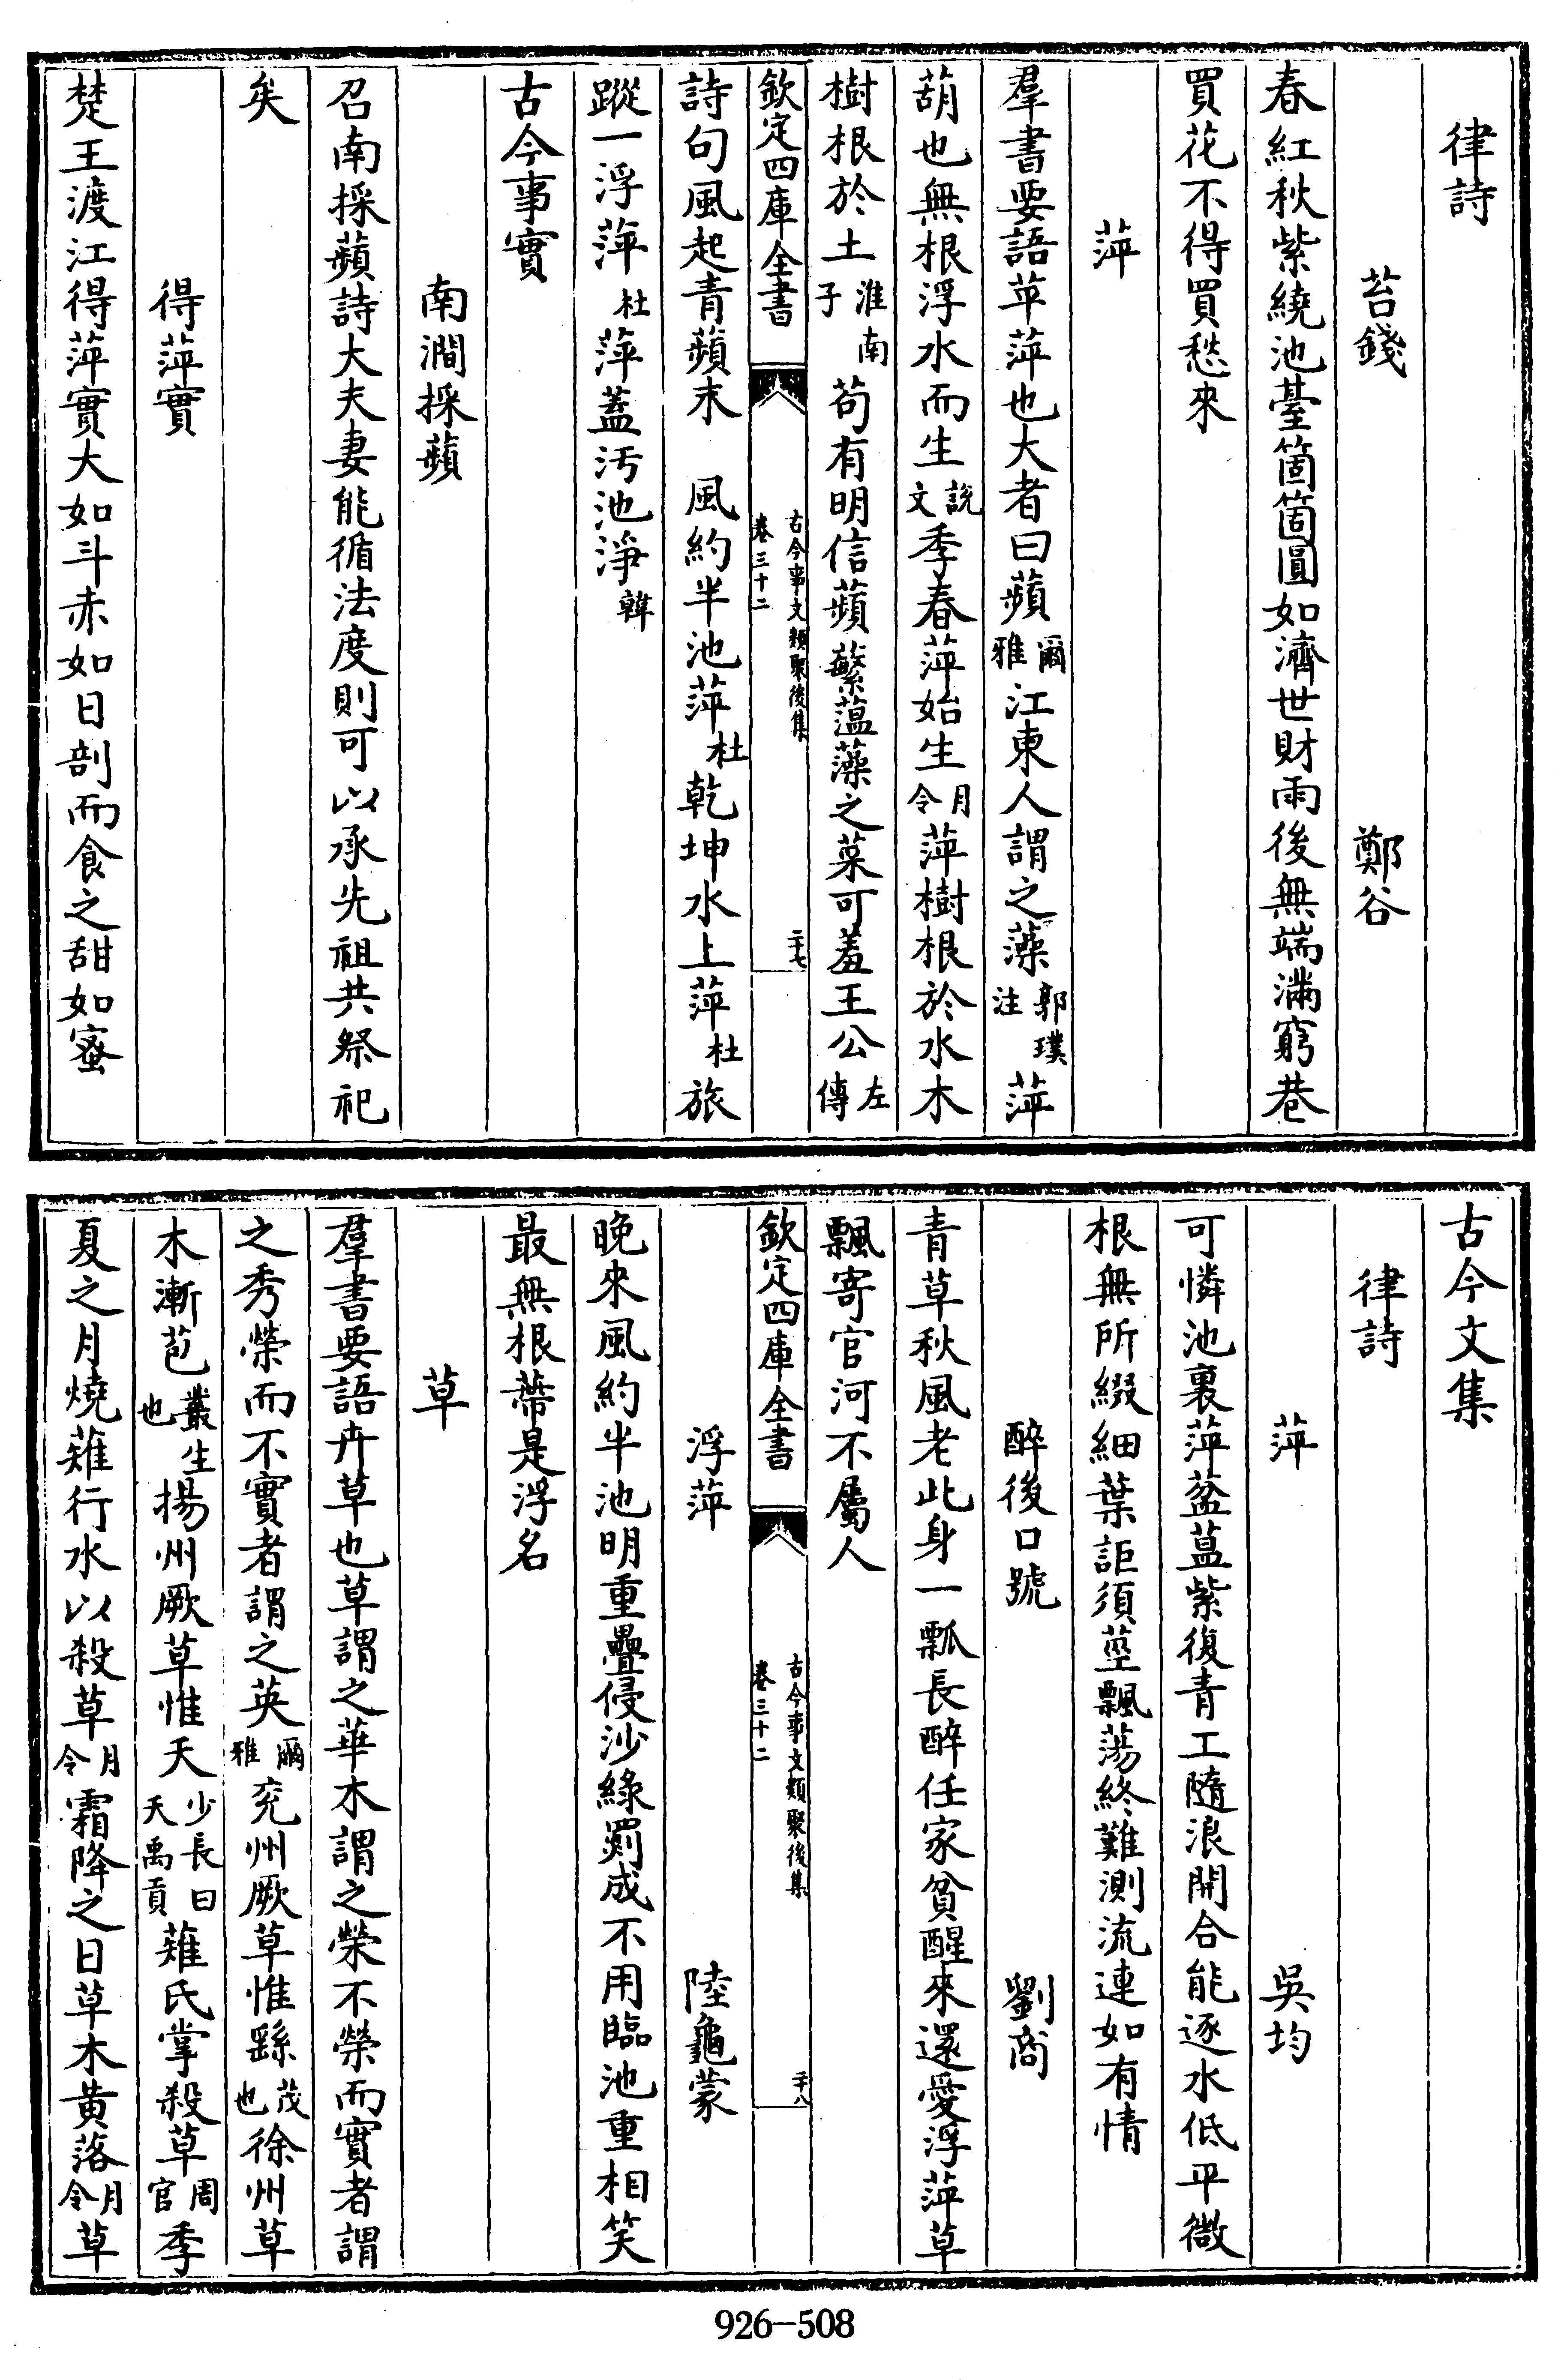 律詩
苔錢 鄭谷
春紅秋紫繞池臺箇箇圓如濟世財雨後無端滿窮巷
買花不得買愁來
萍
羣書要語苹萍也大者曰蘋爾雅江東人謂之藻郭璞注萍
葫也無根浮水而生說文季春萍始生月令萍樹根於水木
樹根於土淮南子 苟有明信蘋蘩薀藻之菜可羞王公左傳
欽定四庫全書 古今事文類聚後集 卷三十二 二十七
詩句風起青蘋末 風約半池萍杜乾坤水上萍杜旅
蹤一浮萍杜萍蓋汚池淨韓
古今事實
南澗採蘋
召南採蘋詩大夫妻能循法度則可以承先祖共祭祀
矣
得萍實
楚王渡江得萍實大如斗赤如日剖而食之甜如蜜
古今文集
律詩
萍 吳均
可憐池裏萍葐蒀紫復青工隨浪開合能逐水低平微
根無所綴細葉詎須莖飄蕩終難測流連如有情
醉後口號 劉商
青草秋風老此身一瓢長醉任家貧醒來還愛浮萍草
飄寄官河不屬人
欽定四庫全書 古今事文類聚後集 卷三十二 二十八
浮萍 陸龜蒙
晚來風約半池明重疊侵沙綠罽成不用臨池重相笑
最無根蔕是浮名
草
羣書要語卉草也草謂之華木謂之榮不榮而實者謂
之秀榮而不實者謂之英爾雅兖州厥草惟繇茂也徐州草
木漸苞叢生也揚州厥草惟夭少長曰夭禹貢薙氏掌殺草周官季
夏之月燒薙行水以殺草月令霜降之日草木黄落月令草
926-508